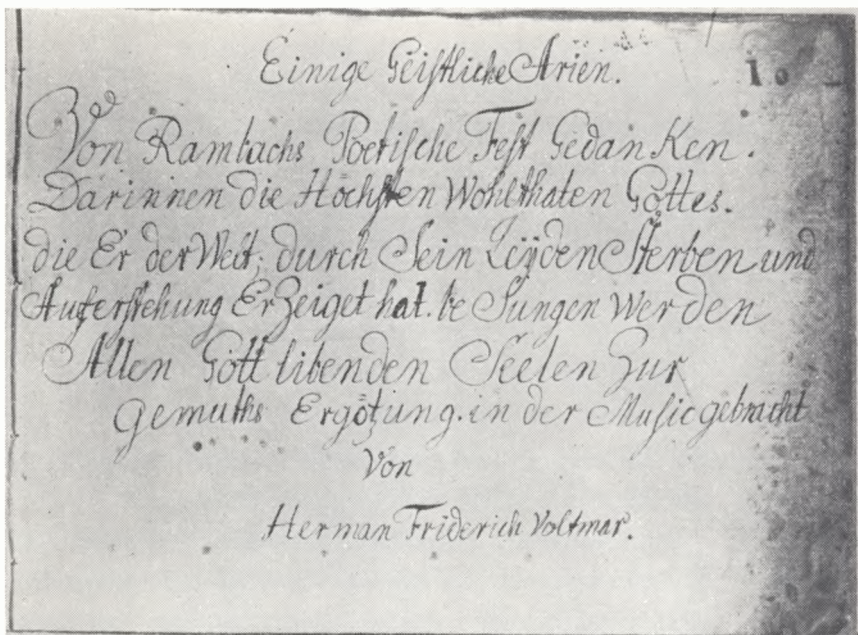 Einige Geistliche Arien.
10
Von Rambachs Poetische Fest Gedanken.
Darinnen die Höchsten Wohlthaten Gottes.
die Er der Welt, durch Sein Leyden Sterben und
Auferstehung Erzeiget hat. be Sungen werden
Allen Gott libenden Seelen Zur
Gemuths Ergötzung. in der Music gebracht
Von
Herman Friderich Voltmar.